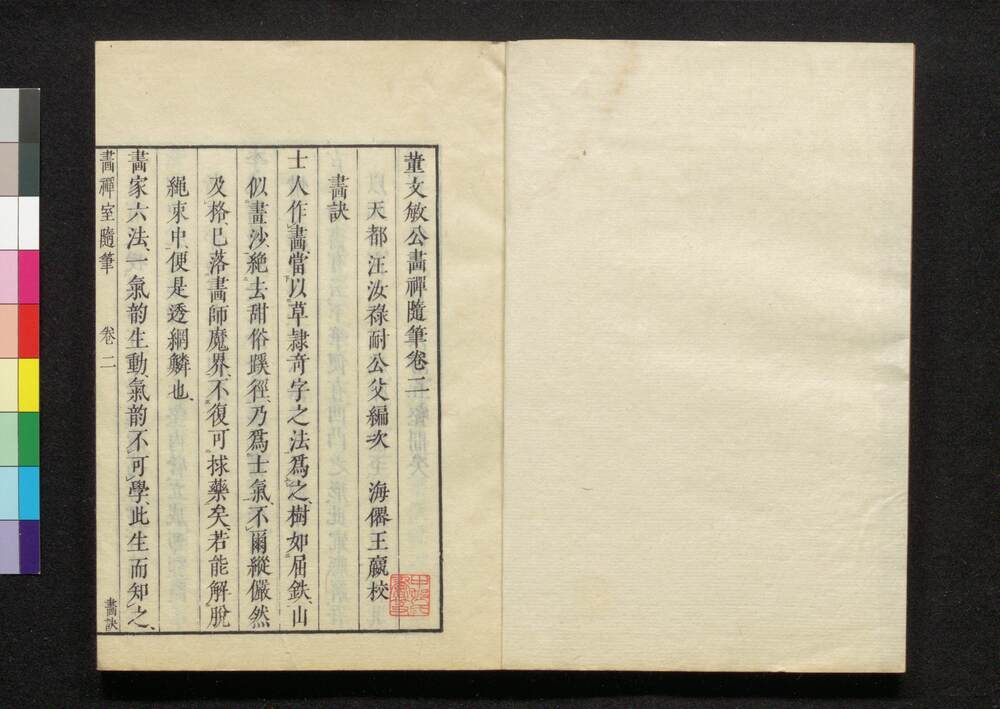 董文敏公畵禪隨筆卷二
天都汪汝祿耐公父編次　海僊王嬴校
畵訣
士人作畵、當以草隷竒字之法爲之、樹如屈鉄、山
似畫沙、絶去甜俗蹊徑、乃爲士氣、不爾縱儼然
及格、已落畵師魔界、不復可捄藥矣、若能解脫
繩束中、便是透網鱗也、
畵家六法、一氣韵生動、氣韵不可學、此生而知之、
畵禪室隨筆　卷二　畵訣